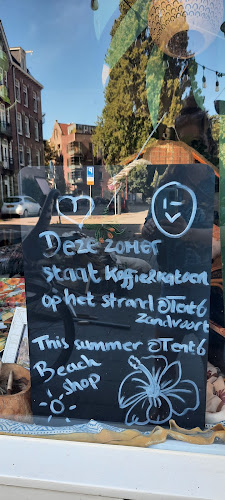 Deze zomer
staat Koffie&Katoen
op het strand @Tent6
Zandvoort
This summer @Tent6
Beach
shop